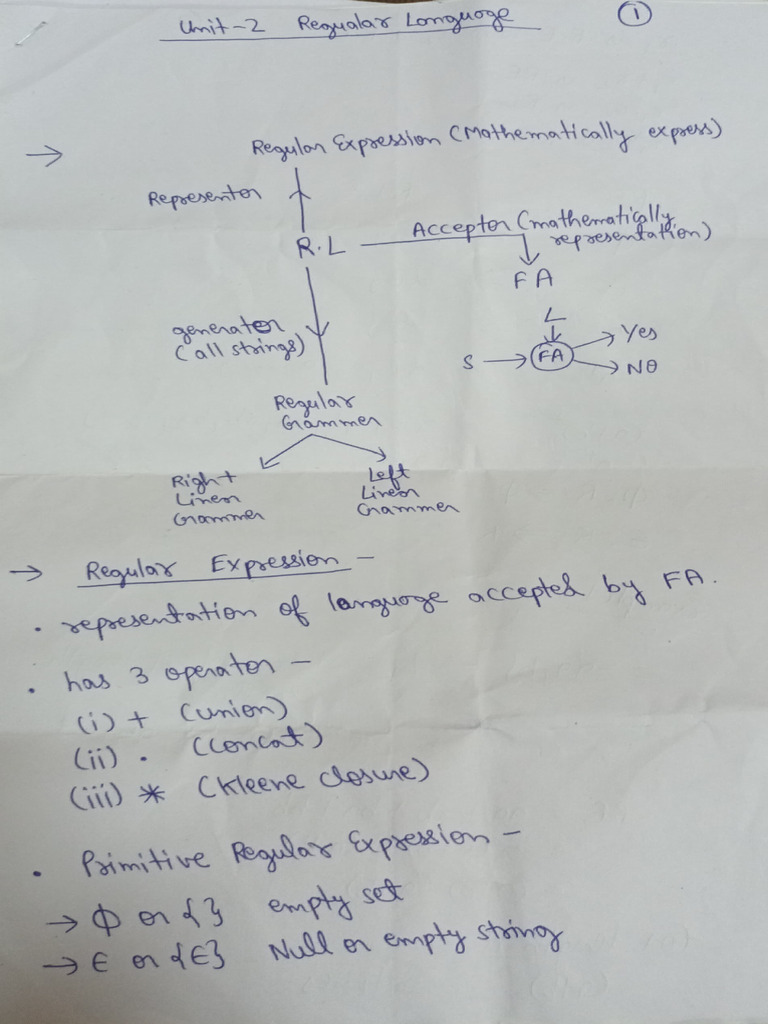 Unit-2 Regualar Language
1
→ Regular Expression (Mathematically express)
Representer
R.L
Acceptor (mathematically
representation)
FA
generator
(all strings)
L
S → FA
Yes
NO
Regular
Grammer
Right
Linear
Grammer
Left
Linear
Grammer
→ Regular Expression -
. representation of language accepted by FA.
. has 3 operator -
(i) + (union)
(ii) . (concat)
(iii) * (Kleene closure)
. Primitive Regular Expression -
→ Φ or {} empty set
→ ∈ or {∈} Null or empty string